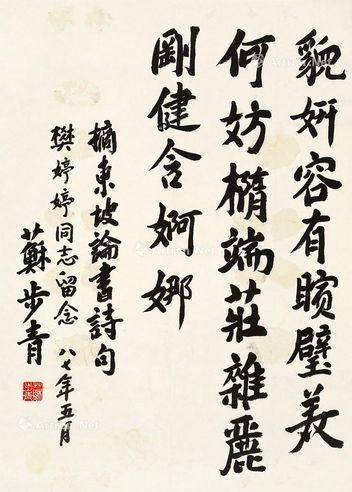 貌妍容有矉璧美
何妨橢端莊雜麗
剛健含婀娜
摘東坡論書詩句
樊婷婷同志留念 八七年五月
蘇步青